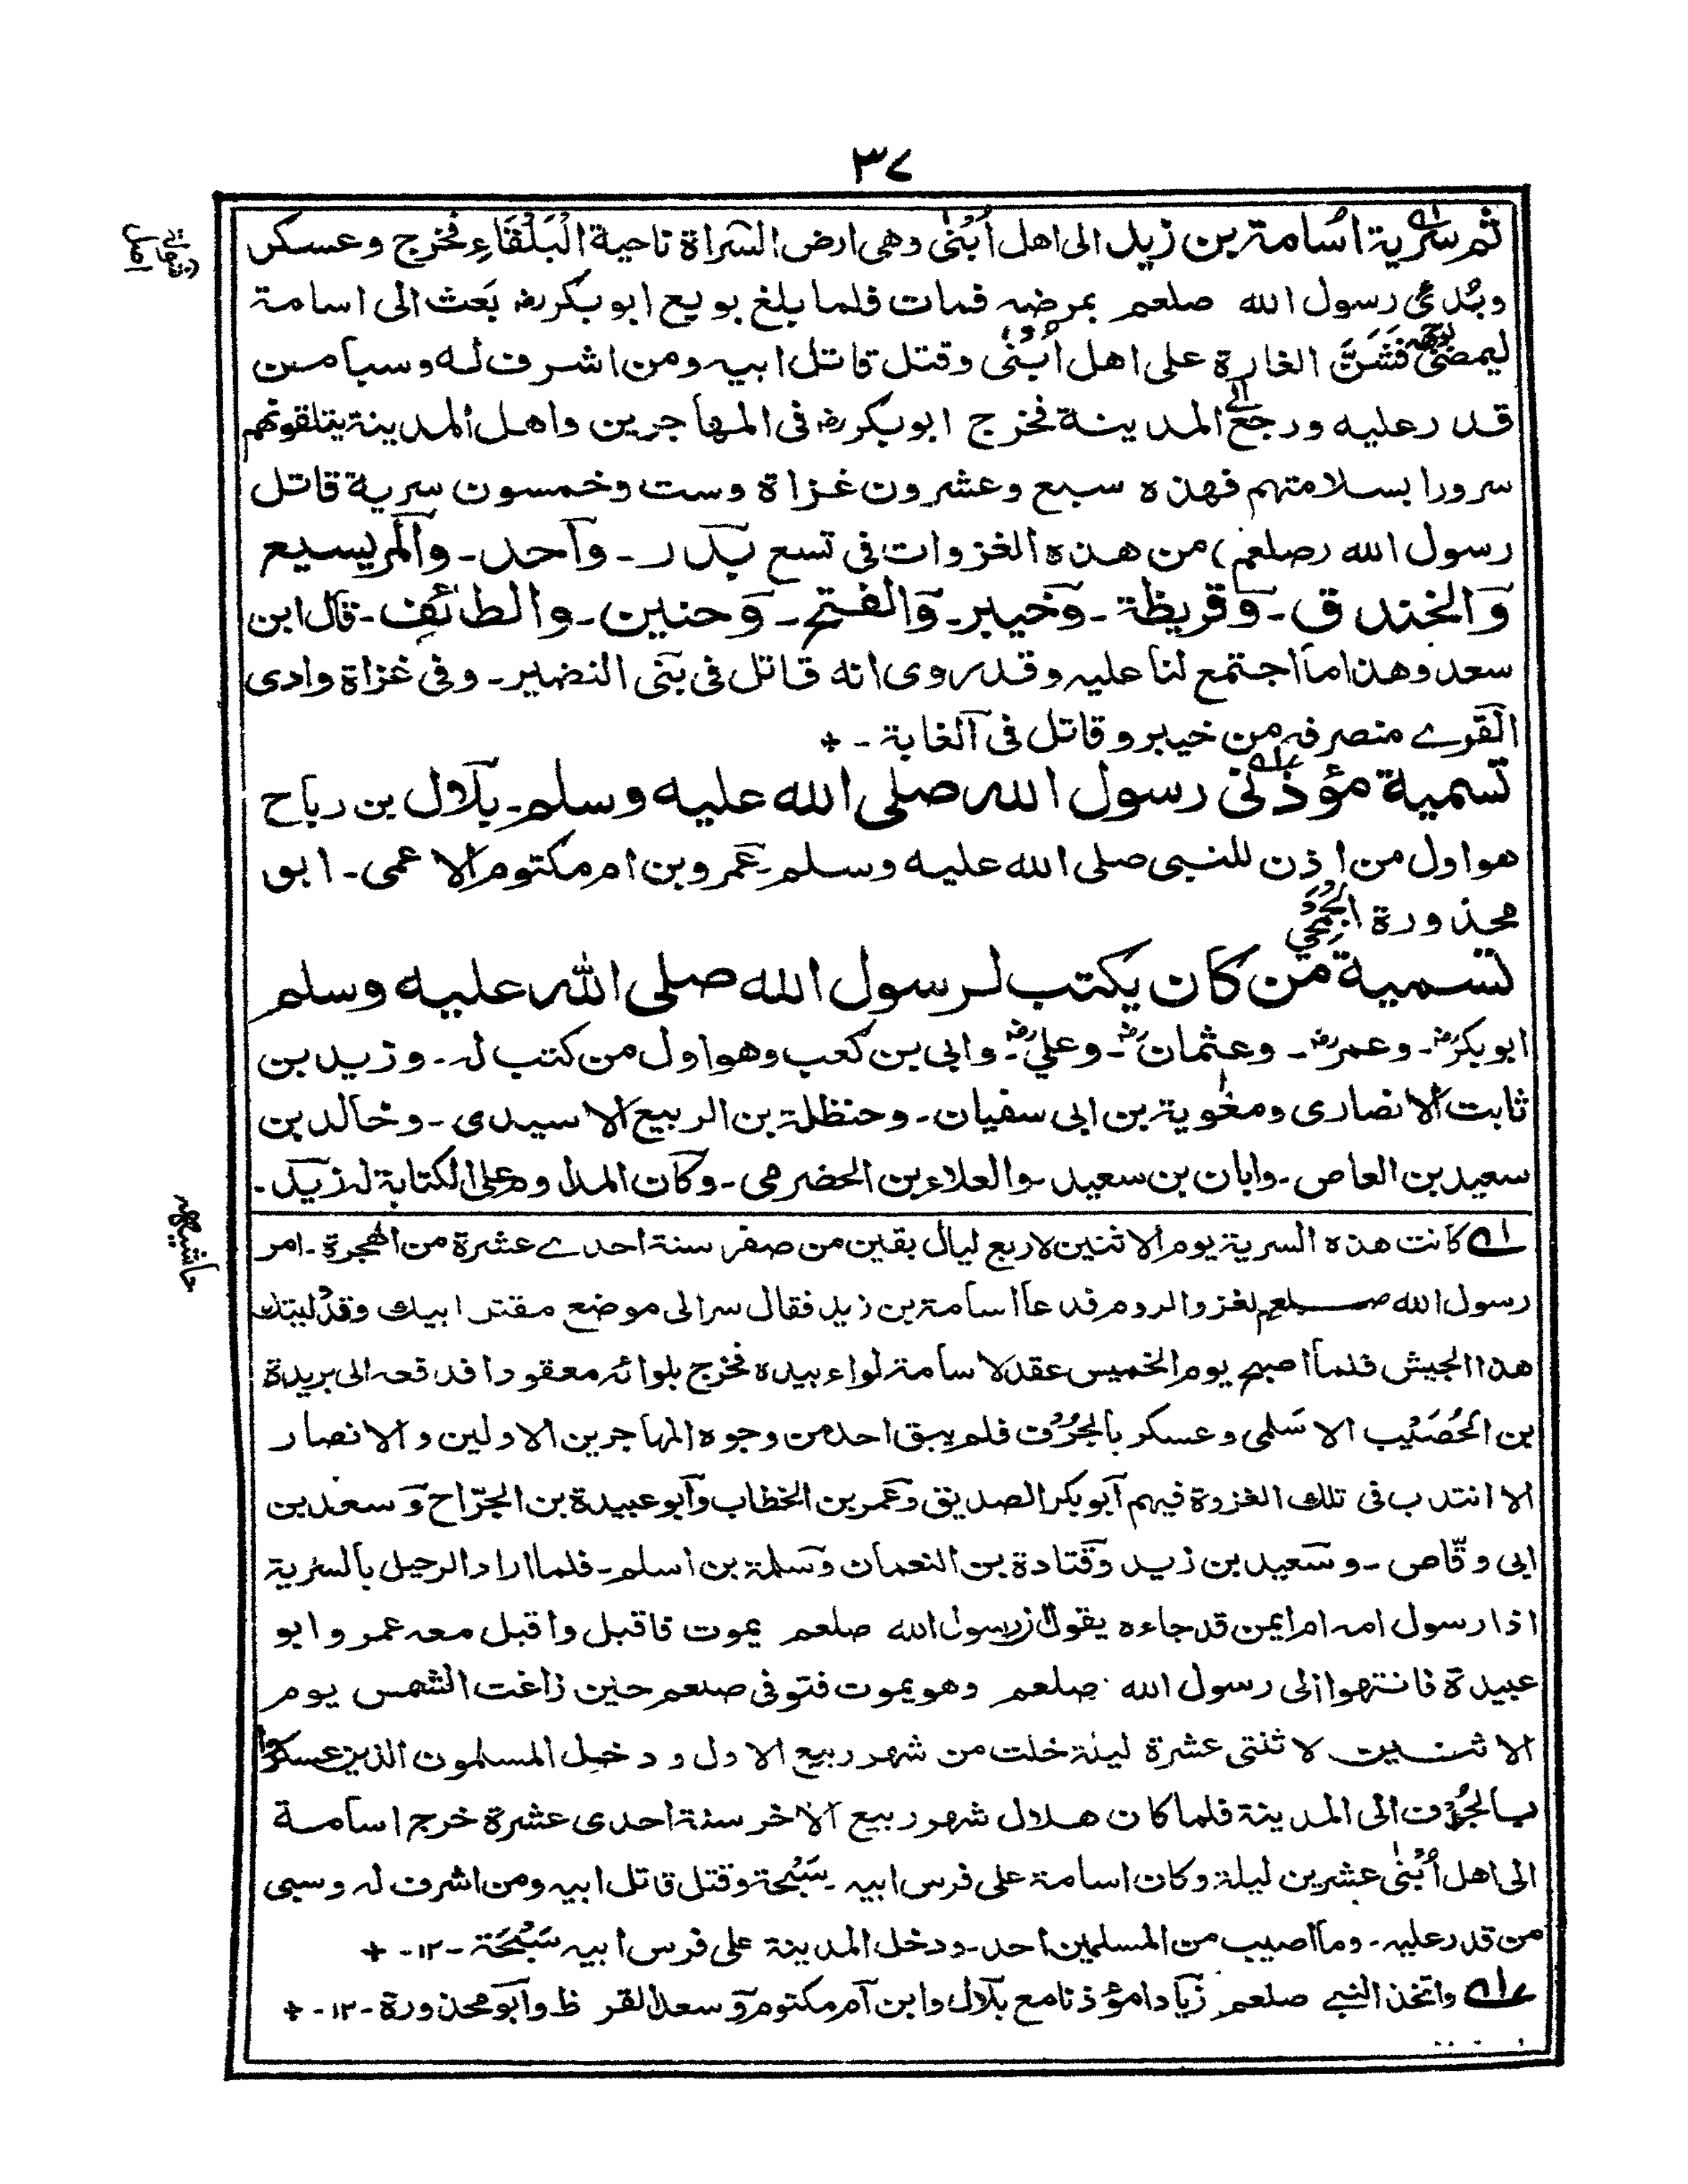 ٣٧
ثم سرية اسامة بن زيد الى اهل اُبْنٰى وهى ارض الشراة ناحية الْبَلْقَاءِ فخرج وعسكر
وبُدئ رسول الله صلعم بمرضه فمات فلما بلغ بويع ابو بكر رض بَعث الى اسامة
ليمضى لوجهه فَشَنَّ الغارة على اهل اُبْنٰى وقتل قاتل ابيه ومن اشرف له وسبا من
قدر عليه ورجع الى المدينة فخرج ابو بكر رض فى المهاجرين واهل المدينة يتلقونهم
سرورا بسلامتهم فهذه سبع وعشرون غزاة وست وخمسون سرية قاتل
رسول الله (صلعم) من هذه الغزوات فى تسع بدر ـ وآحد ـ والمريسيع
والخندق ـ وقريظة ـ وخيبر ـ والفتح ـ وحنين ـ والطائف ـ قال ابن
سعد وهذا ما اجتمع لنا عليه وقد روى انه قاتل فى بنى النضير ـ وفى غزاة وادى
القرے منصرفه من خيبر وقاتل فى الغابة ـ +
تسمية مؤذنى رسول الله صلى الله عليه وسلم ـ بلال بن رباح
هو اول من اذن للنبى صلى الله عليه وسلم ـ عمرو بن ام مكتوم الاعمى ـ ابو
محذورة الجُمَحِي
تسمية من كان يكتب لرسول الله صلى الله عليه وسلم
ابو بكر رض ـ وعمر رض ـ وعثمان رض ـ وعلي رض ـ وابى بن كعب وهو اول من كتب له ـ وزيد بن
ثابت الانصارى ومعٰوية بن ابى سفيان ـ وحنظلة بن الربيع الاسيدى ـ وخالد بن
سعيد بن العاص ـ وابان بن سعيد ـ والعلاء بن الحضرمى ـ وكان المداوم على الكتابة له زيد ـ
حاشيه
١ــه كانت هذه السرية يوم الاثنين لاربع ليال بقين من صفر سنة احدے عشرة من الهجرة ـ امر
رسول الله صلعم لغزو الروم فدعا اسامة بن زيد فقال سر الى موضع مقتل ابيك وقد ليتك
هذا الجيش فلما اصبح يوم الخميس عقد لاسامة لواء بيده فخرج بلوائه معقودا فدفعه الى بريدة
بن الحُصَيْب الاسَلمى وعسكر بالجُرُف فلم يبق احد من وجوه المهاجرين الاولين والانصار
الا انتدب فى تلك الغزوة فيهم آبو بكر الصديق وعمر بن الخطاب وآبو عبيدة بن الجرّاح وسعد بن
ابى وقّاص ـ وسعيد بن زيد وقتادة بن النعمان وسلمة بن اسلم ـ فلما اراد الرحيل بالسرية
اذا رسول امه ام ايمن قد جاءه يقول ان رسول الله صلعم يموت فاقبل واقبل معه عمر وابو
عبيدة فانتهوا الى رسول الله صلعم وهو يموت فتوفى صلعم حين زاغت الشمس يوم
الاثنين لاثنتى عشرة ليلة خلت من شهر ربيع الاول ودخل المسلمون الذين عسكروا
بالجُرُف الى المدينة فلما كان هلال شهر ربيع الآخر سنة احدى عشرة خرج اسامة
الى اهل اُبْنٰى عشرين ليلة وكان اسامة على فرس ابيه ـ سَبْحَة وقتل قاتل ابيه ومن اشرف له وسبى
من قدر عليه ـ وما اصيب من المسلمين احد ـ ودخل المدينة على فرس ابيه سَبْحَة ـ ١٢ ـ +
٢ــه واتخذ النبے صلعم زيادا مؤذنا مع بلال وابن آم مكتوم وسعد القرظ وآبو محذورة ـ ١٢ ـ +